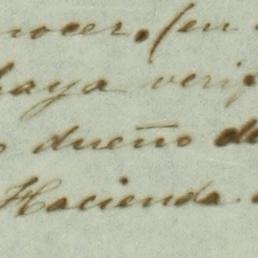 nocer. (en
haya veri
dueño de
Hacienda